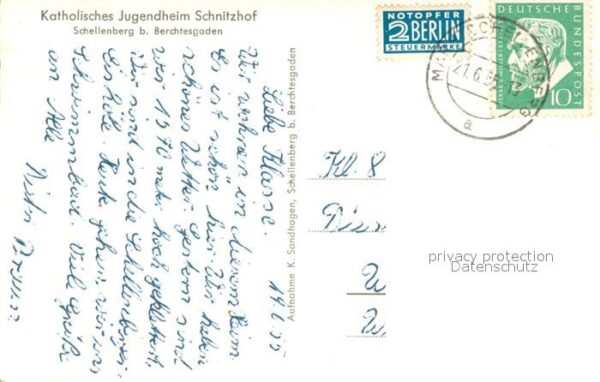 Katholisches Jugendheim Schnitzhof
Schellenberg b. Berchtesgaden
NOTOPFER
2 BERLIN
STEUERMARKE
DEUTSCHE
BUNDESPOST
10
21.6.55
a
19.6.55
Liebe Klasse.
Wir wohnen in diesem Heim.
Es ist schön hier. Wir haben
schönes Wetter. Gestern sind
wir 1570 meter hoch geklettert.
Wir sind in die Schellenberger-
eishöle. Heute gehen wir ins
Schwimmbad. Viele Grüße
an Alle
Aufnahme K. Sandhagen, Schellenberg b. Berchtesgaden
Kl. 8
W
W
privacy protection
Datenschutz